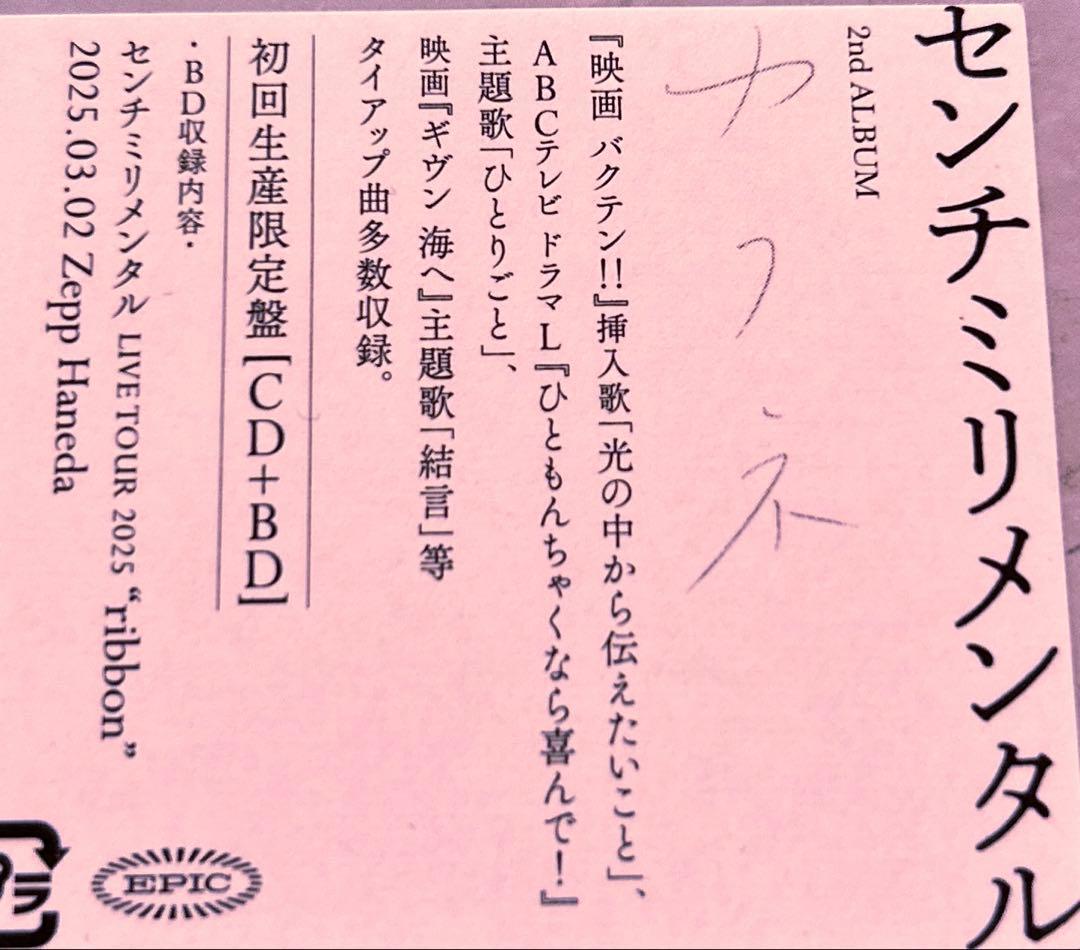 センチミリメンタル
2nd ALBUM
カフネ
『映画 バクテン!!』挿入歌「光の中から伝えたいこと」、
ABCテレビ ドラマL『ひともんちゃくなら喜んで！』
主題歌「ひとりごと」、
映画『ギヴン 海へ』主題歌「結言」等
タイアップ曲多数収録。
初回生産限定盤［CD＋BD］
・BD収録内容・
センチミリメンタル LIVE TOUR 2025 “ribbon”
2025.03.02 Zepp Haneda
EPIC
プラ